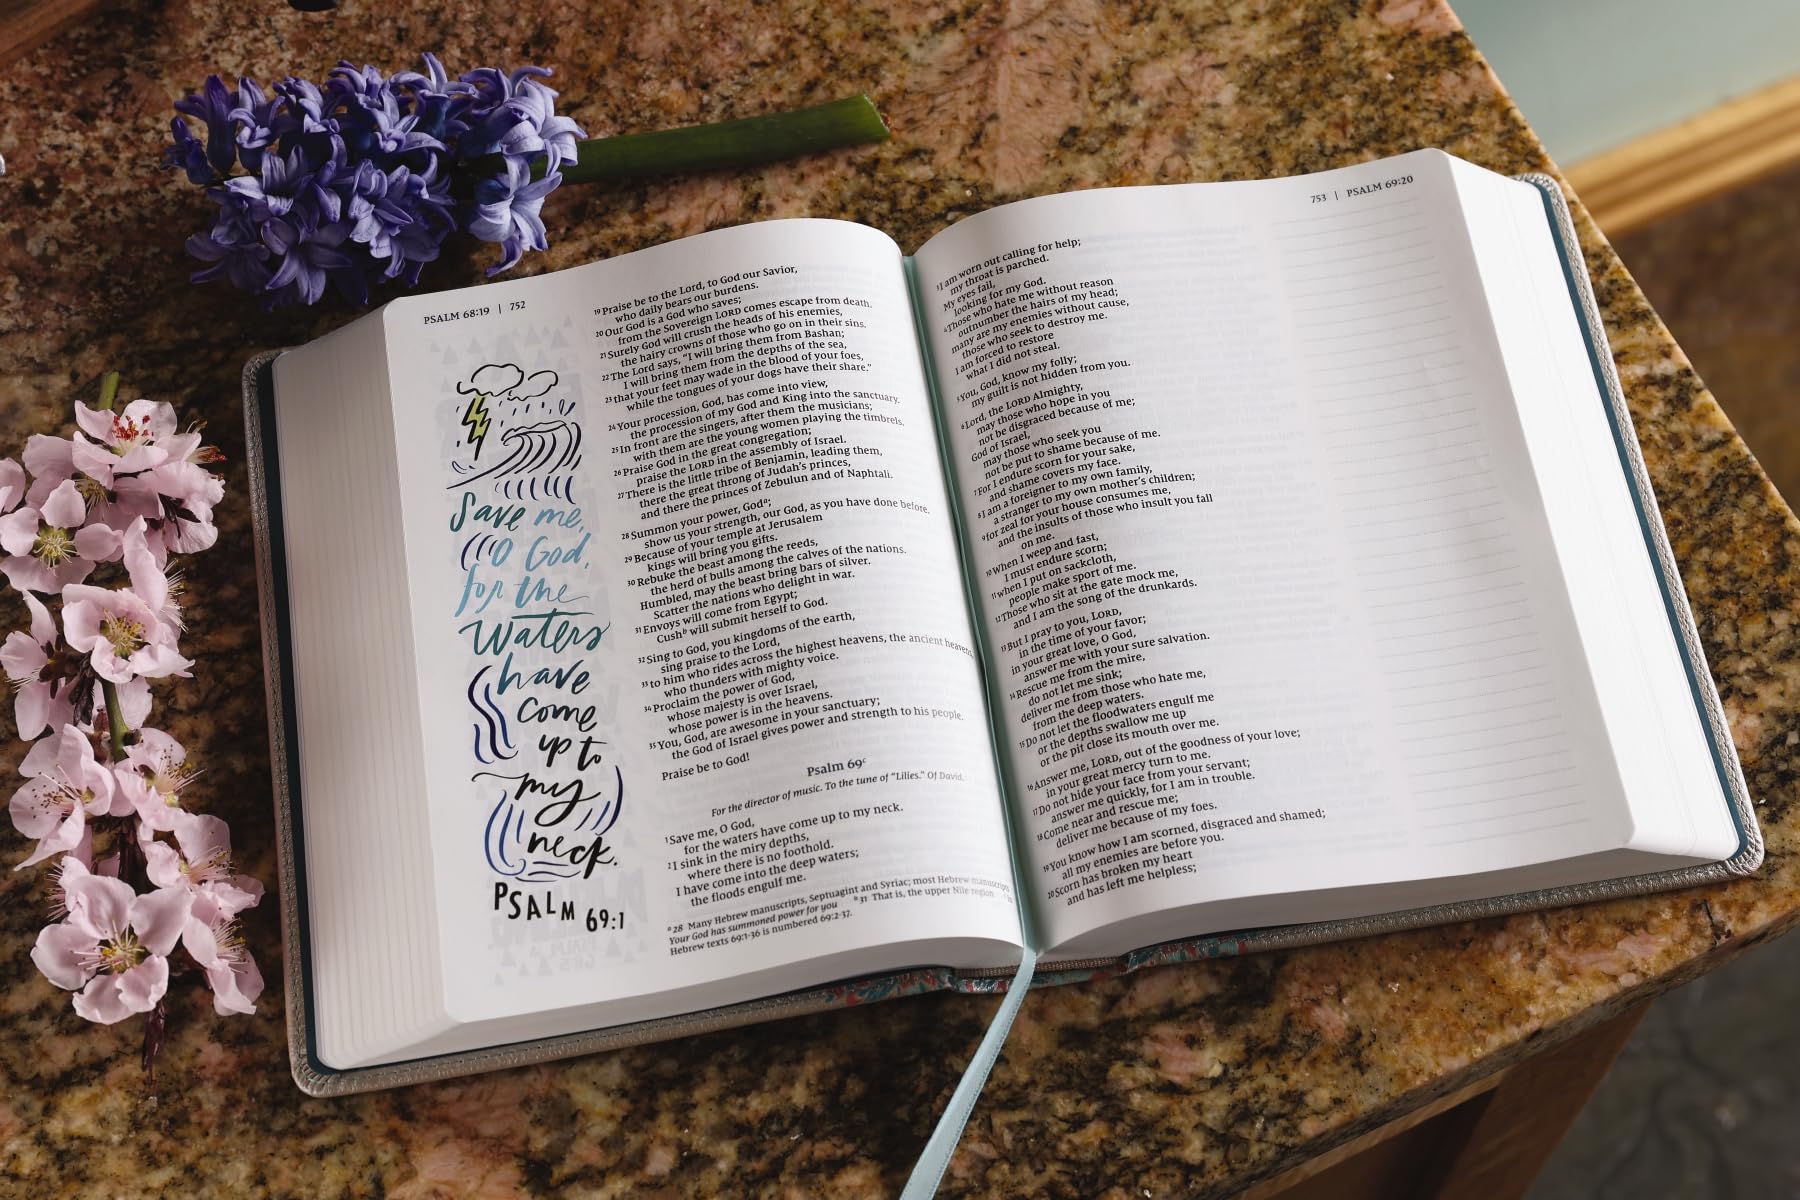 PSALM 68:19 | 752
Save me,
O God,
for the
waters
have
come
up to
my
neck.
PSALM 69:1
19 Praise be to the Lord, to God our Savior,
who daily bears our burdens.
20 Our God is a God who saves;
from the Sovereign LORD comes escape from death.
21 Surely God will crush the heads of his enemies,
the hairy crowns of those who go on in their sins.
22 The Lord says, “I will bring them from Bashan;
I will bring them from the depths of the sea,
23 that your feet may wade in the blood of your foes,
while the tongues of your dogs have their share.”
24 Your procession, God, has come into view,
the procession of my God and King into the sanctuary.
25 In front are the singers, after them the musicians;
with them are the young women playing the timbrels.
26 Praise God in the great congregation;
praise the LORD in the assembly of Israel.
27 There is the little tribe of Benjamin, leading them,
there the great throng of Judah’s princes,
and there the princes of Zebulun and of Naphtali.
28 Summon your power, God a;
show us your strength, our God, as you have done before.
29 Because of your temple at Jerusalem
kings will bring you gifts.
30 Rebuke the beast among the reeds,
the herd of bulls among the calves of the nations.
Humbled, may the beast bring bars of silver.
Scatter the nations who delight in war.
31 Envoys will come from Egypt;
Cush b will submit herself to God.
32 Sing to God, you kingdoms of the earth,
sing praise to the Lord,
33 to him who rides across the highest heavens, the ancient heavens,
who thunders with mighty voice.
34 Proclaim the power of God,
whose majesty is over Israel,
whose power is in the heavens.
35 You, God, are awesome in your sanctuary;
the God of Israel gives power and strength to his people.
Praise be to God!
Psalm 69 c
For the director of music. To the tune of “Lilies.” Of David.
1 Save me, O God,
for the waters have come up to my neck.
2 I sink in the miry depths,
where there is no foothold.
I have come into the deep waters;
the floods engulf me.
a 28 Many Hebrew manuscripts, Septuagint and Syriac; most Hebrew manuscripts
Your God has summoned power for you b 31 That is, the upper Nile region
Hebrew texts 69:1-36 is numbered 69:2-37.
753 | PSALM 69:20
3 I am worn out calling for help;
my throat is parched.
My eyes fail,
looking for my God.
4 Those who hate me without reason
outnumber the hairs of my head;
many are my enemies without cause,
those who seek to destroy me.
I am forced to restore
what I did not steal.
5 You, God, know my folly;
my guilt is not hidden from you.
6 Lord, the LORD Almighty,
may those who hope in you
not be disgraced because of me;
God of Israel,
may those who seek you
not be put to shame because of me.
7 For I endure scorn for your sake,
and shame covers my face.
8 I am a foreigner to my own family,
a stranger to my own mother’s children;
9 for zeal for your house consumes me,
and the insults of those who insult you fall
on me.
10 When I weep and fast,
I must endure scorn;
11 when I put on sackcloth,
people make sport of me.
12 Those who sit at the gate mock me,
and I am the song of the drunkards.
13 But I pray to you, LORD,
in the time of your favor;
in your great love, O God,
answer me with your sure salvation.
14 Rescue me from the mire,
do not let me sink;
deliver me from those who hate me,
from the deep waters.
15 Do not let the floodwaters engulf me
or the depths swallow me up
or the pit close its mouth over me.
16 Answer me, LORD, out of the goodness of your love;
in your great mercy turn to me.
17 Do not hide your face from your servant;
answer me quickly, for I am in trouble.
18 Come near and rescue me;
deliver me because of my foes.
19 You know how I am scorned, disgraced and shamed;
all my enemies are before you.
20 Scorn has broken my heart
and has left me helpless;